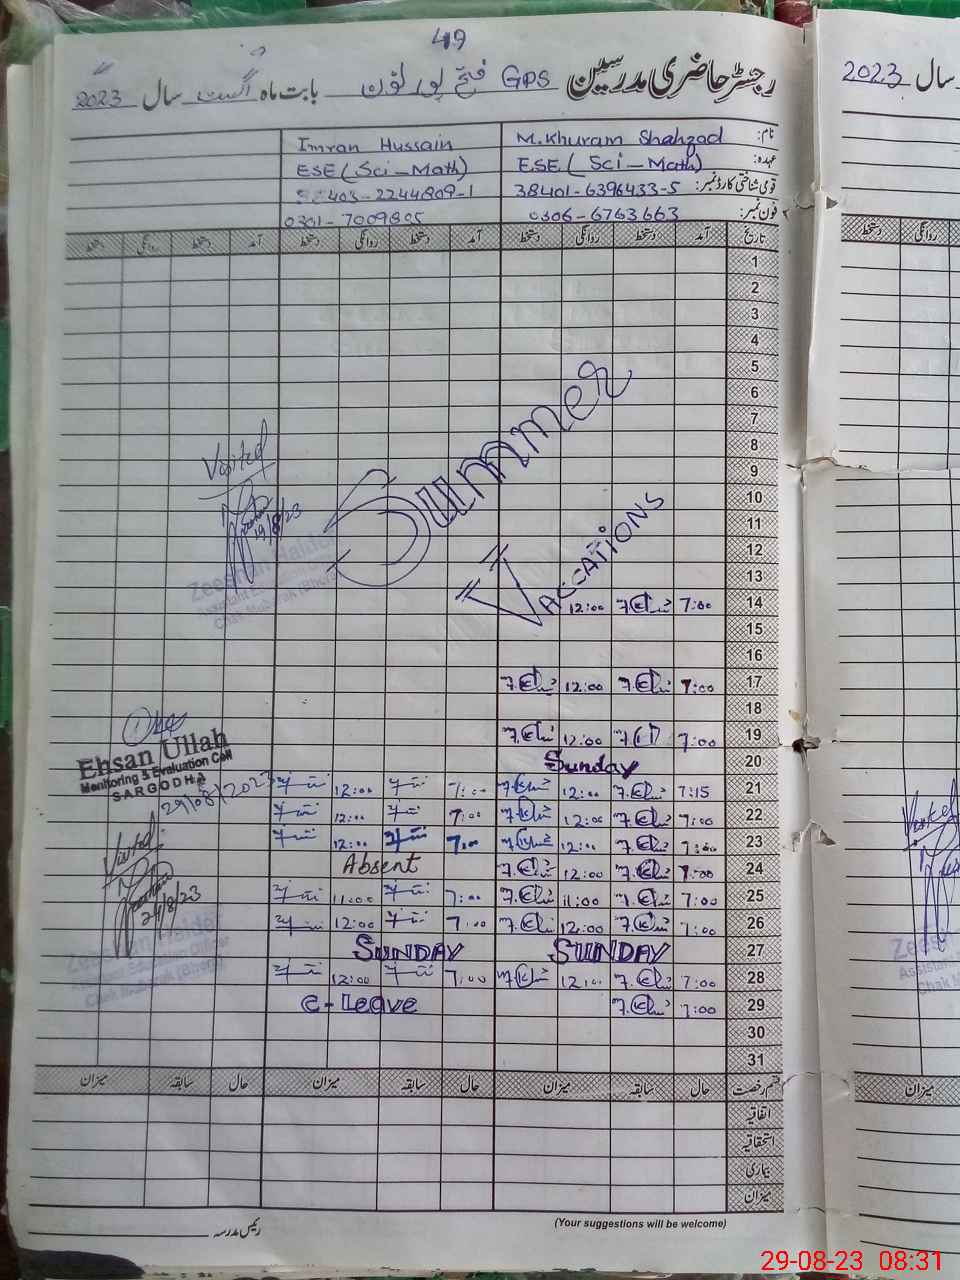 49
رجسٹر حاضری مدرسین GPS فتح پور لون بابت ماہ اگست سال 2023
نام: M. Khuram Shahzad Imran Hussain
عہدہ: ESE (Sci-Math) ESE (Sci-Math)
قومی شناختی کارڈ نمبر: 38401-6396433-5 403-2244809-1
فون نمبر: 0306-6763663 0301-7009805
تاریخ آمد دستخط روانگی دستخط آمد دستخط روانگی دستخط آمد دستخط روانگی دستخط
1
2
3
4
5
6
7
8
9
10
11
12
13
Summer
Vaccations
14 7:00 12:00
15
16
17 7:00 12:00
18
19 7:00 12:00
20 Sunday
21 7:15 12:00 7:00 12:00
22 7:00 12:00 7:00 12:00
23 7:00 12:00 7:00 12:00
24 7:00 12:00 Absent
25 7:00 11:00 7:00 11:00
26 7:00 12:00 7:00 12:00
27 SUNDAY SUNDAY
28 7:00 12:00 7:00 12:00
29 7:00 C-Leave
30
31
Visited
19/8/23
Zeeshan Haider
Ehsan Ullah
Monitoring & Evaluation Cell
SARGODHA
29/08/2023
Visited
24/8/23
Zeeshan Haider
Assistant Education Officer
Chak Mubarak (Bhera)
قسم رخصت حال سابقہ میزان حال سابقہ میزان حال سابقہ میزان
اتفاقیہ
استحقاقیہ
بیماری
میزان
رئیس مدرسہ
(Your suggestions will be welcome)
سال 2023
دستخط روانگی
Visited
میزان
29-08-23 08:31